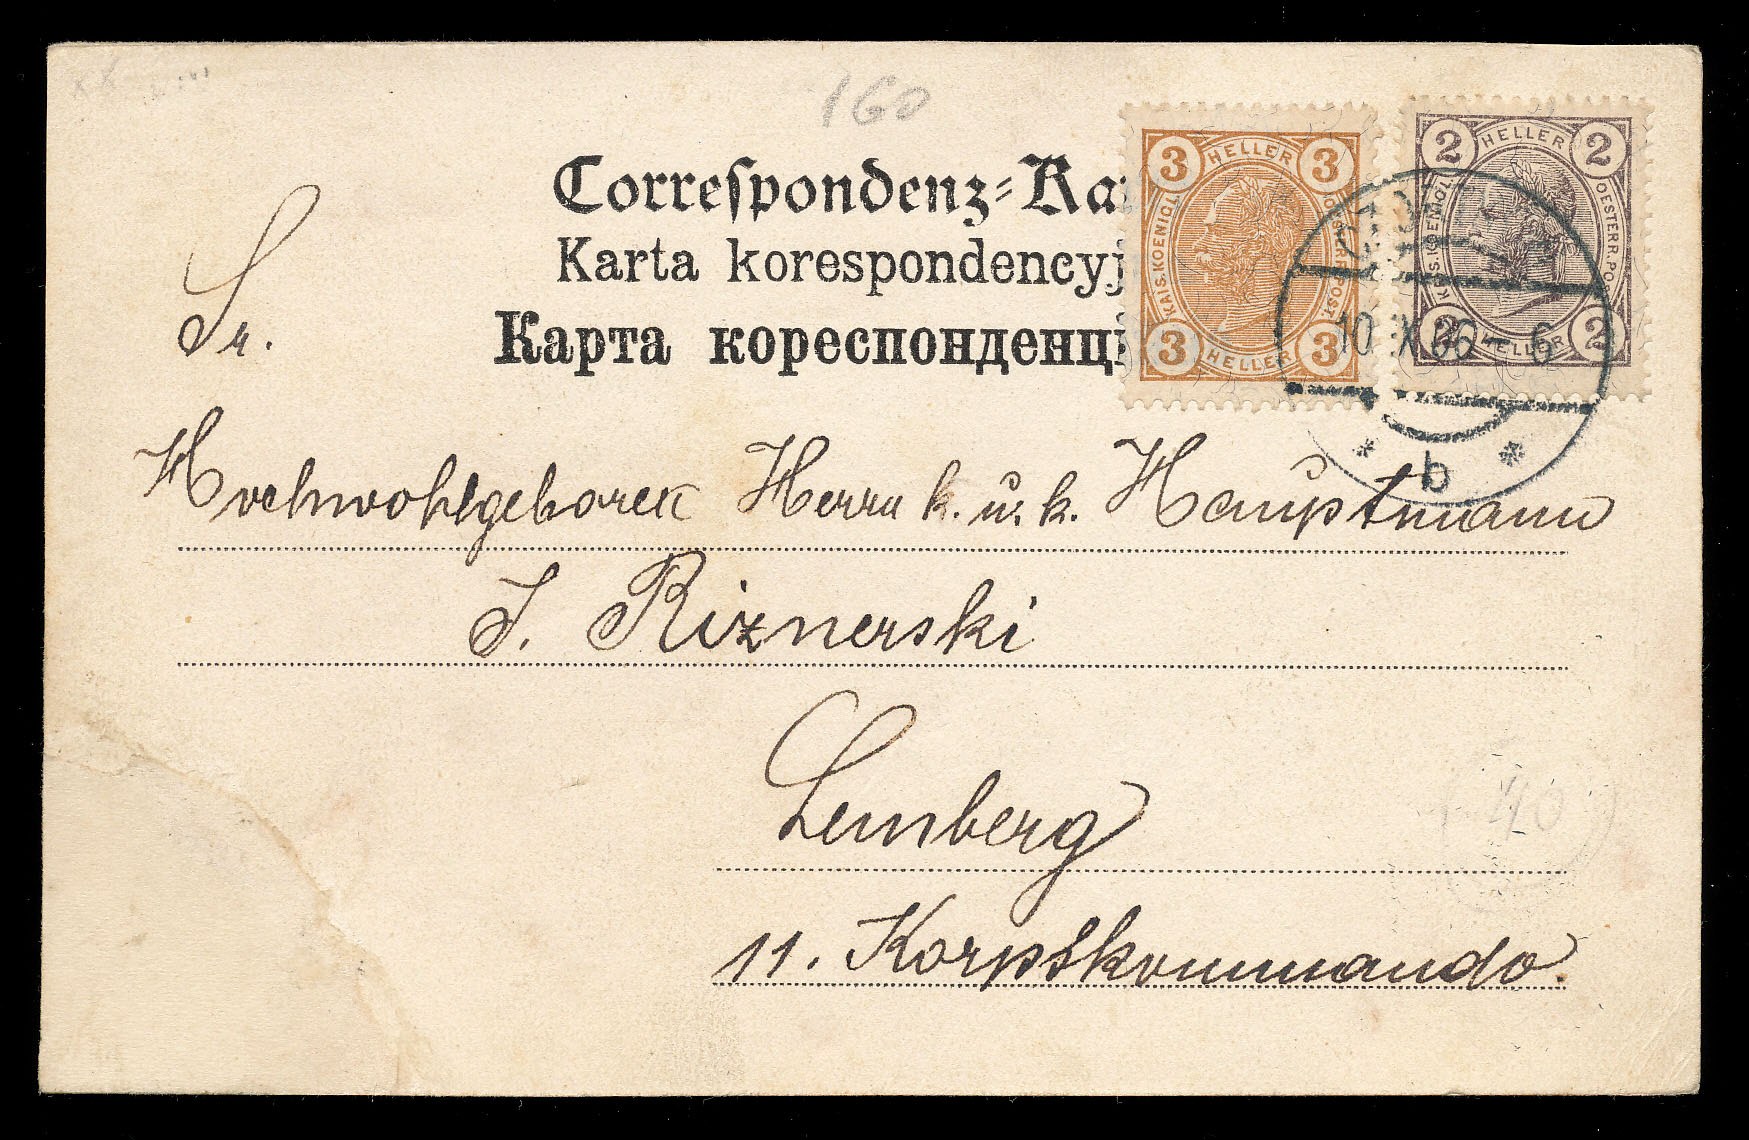 160
Correspondenz-Kar
Karta korespondencyj
Карта кореспонденці
3 HELLER 3
KAIS. KOENIGL. OESTERR. POST.
3 HELLER 3
2 HELLER 2
KAIS. KOENIGL. OESTERR. POST.
2 HELLER 2
10 X 06 - 6
* b *
Sr.
Hochwohlgeboren Herrn k. u. k. Hauptmann
J. Riznerski
Lemberg
11. Korpskommando.